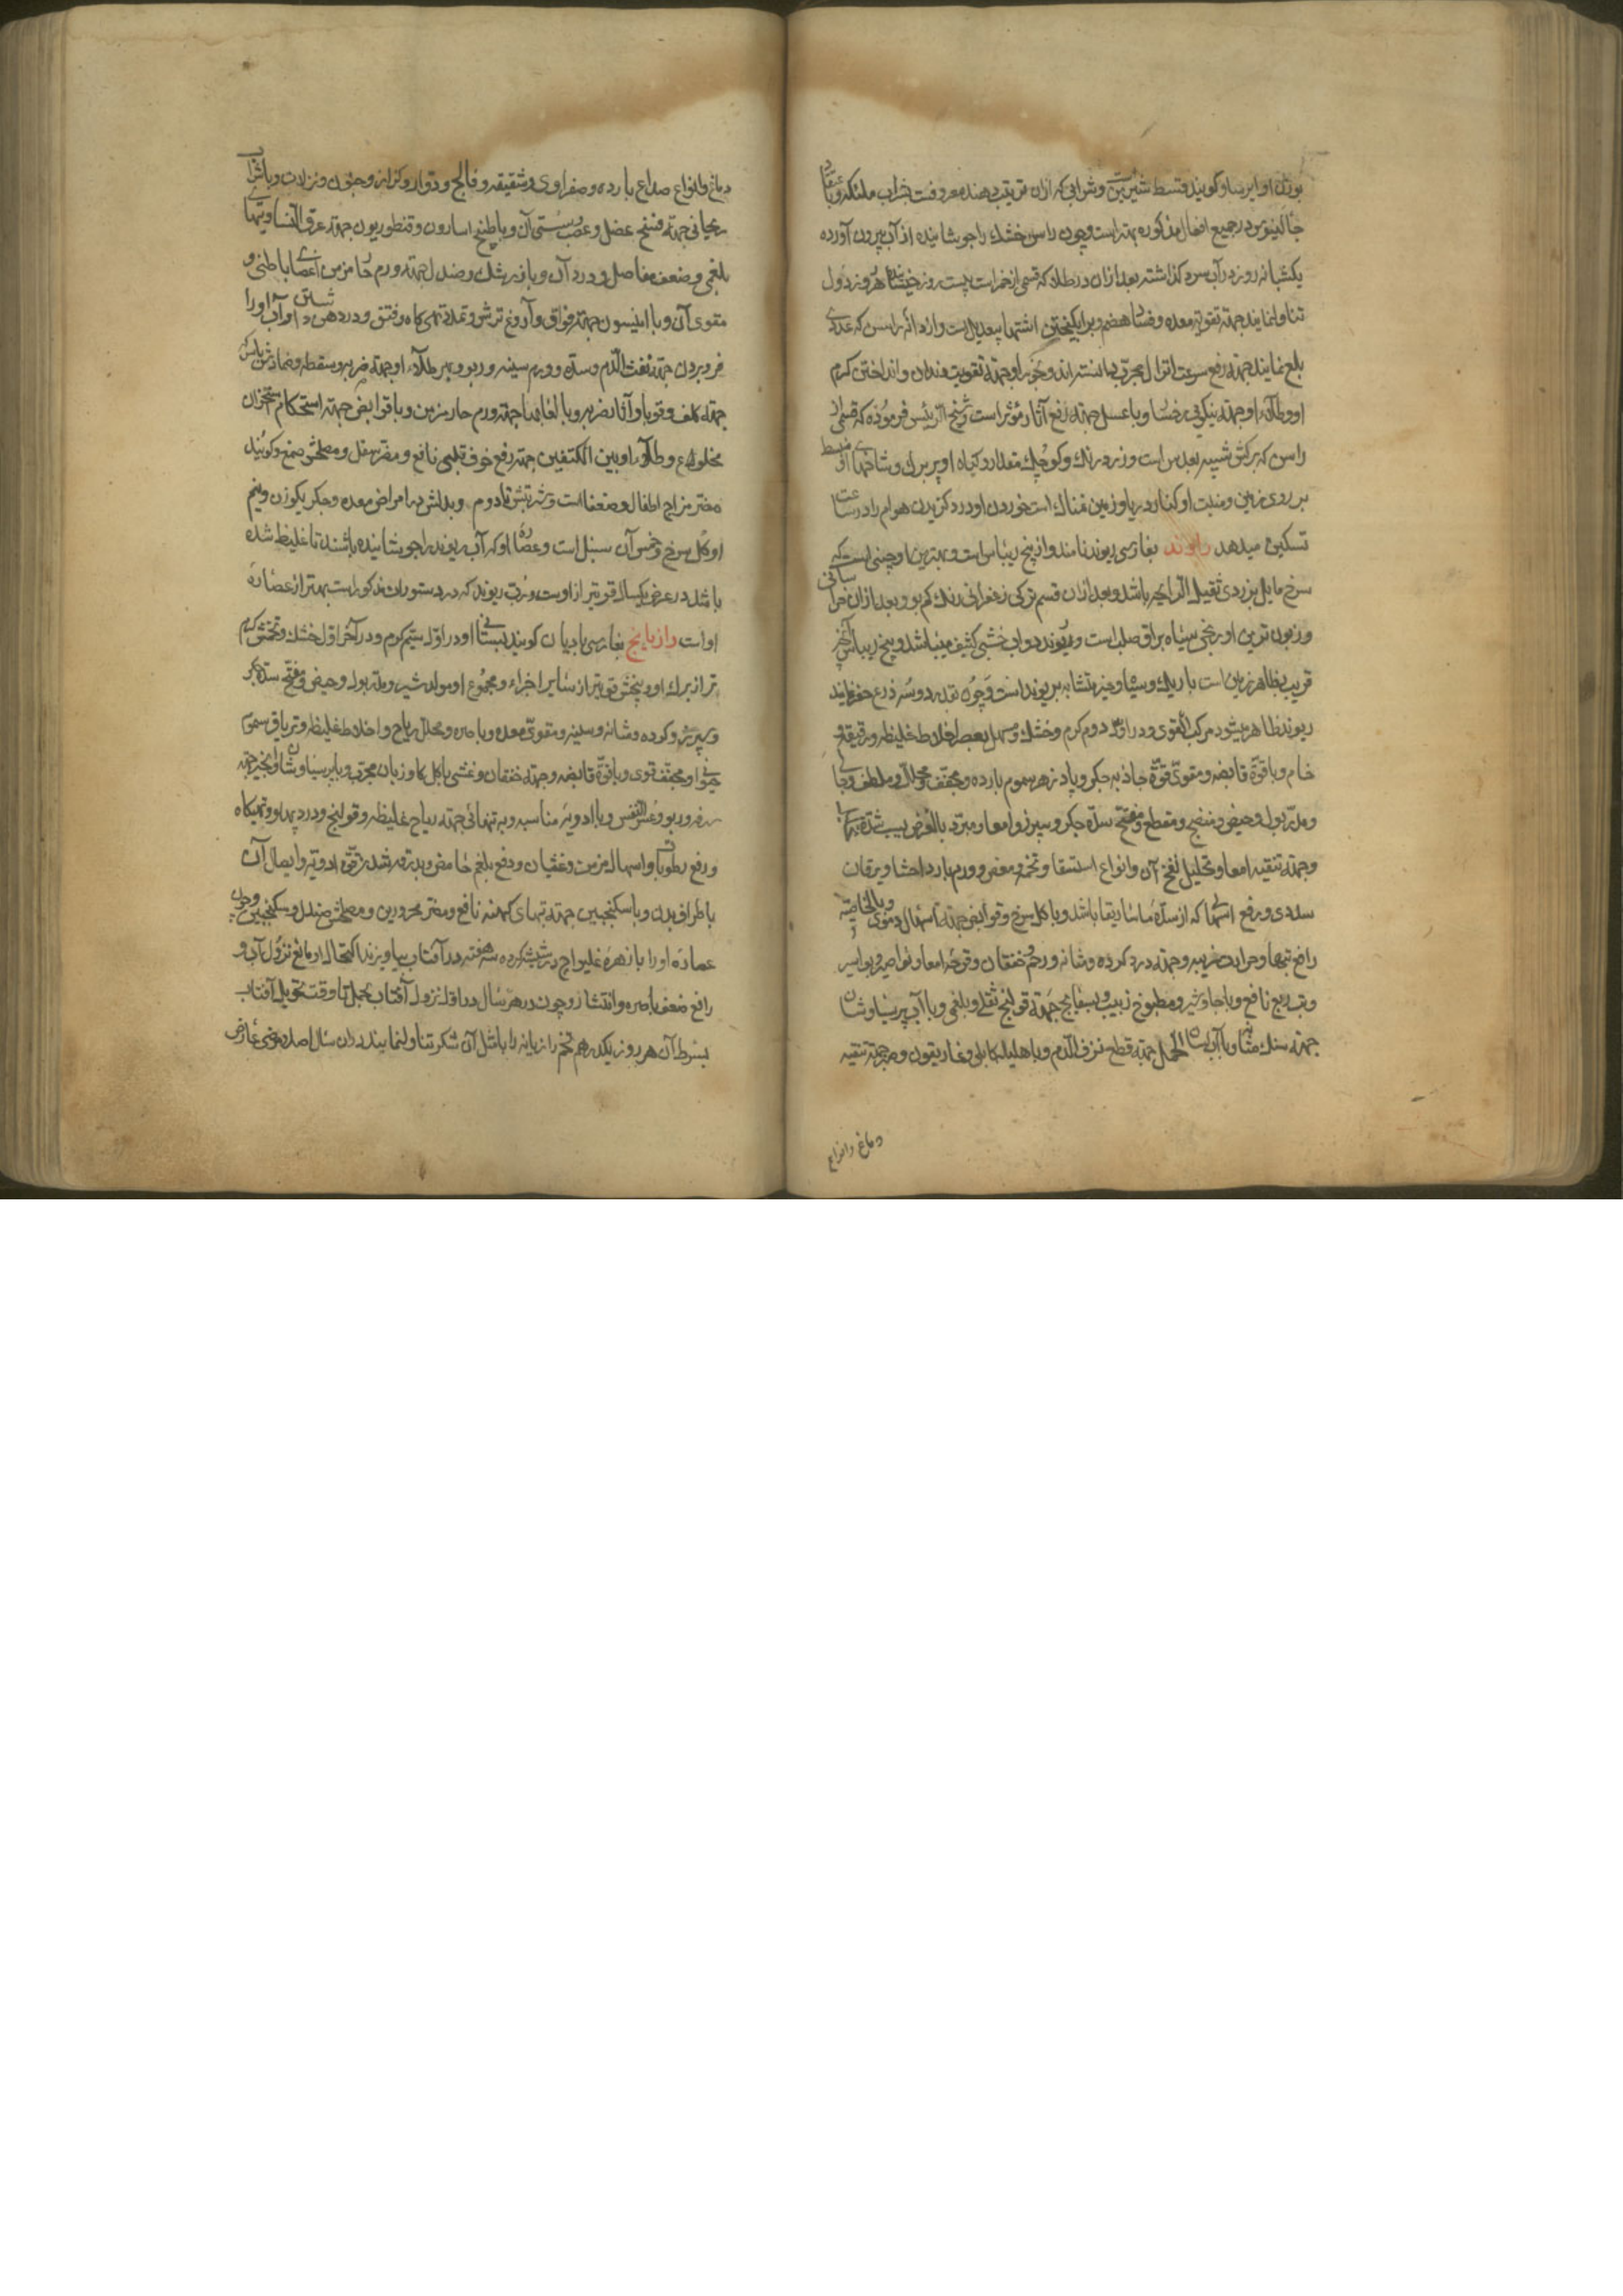 بوزن او ایرسا و گویند قسط شیرین و شرابی که ازان ترتیب دهند معروفست بشراب ملنکه و باعتقاد
جالینوس در جمیع افعال مذکوره بهتر است و چون راسن خشک را جوشانیده از آب بیرون آورده
یکشبانه روز در آب سرد گذاشته بعد ازان در طلا که قسمی از خمر است بیست روز خیسانیده هر روز دو
تناول نمایند جهته تقویة معده و هضم و برانگیختن اشتها بیعدیل است و از دانه راسن که عددی
بلع نمایند جهته رفع سرعت انزال مجرب دانسته‌اند و بخور او جهته تقویت دندان و انداختن کرم
او و طلاء او جهته نیکوئی رخسار و با عسل جهته رفع آثار مؤثر است و شیخ الرئیس فرموده که قسمی از
راسن که برگش شبیه بعدس است و زرد رنگ و کوچک مقدار و گیاه او پر برگ و شاخهای او منبسط
بر روی زمین و منبت او کنار دریا و زمین نمناک است خوردن او درد گزیدن هوام را در ساعت
تسکین میدهد راوند بفارسی ریوند نامند و از بیخ ریباس است و بهترین او چینی است که
سرخ مایل بزردی ثقیل الرایحه باشد و بعد ازان قسم ترکی زعفرانی رنگ کم بو و بعد ازان خراسانی
و زبون‌ترین او زنجی سیاه براق صلب است و ریوند دواب خشبی کثیف میباشد و بیخ ریباس آنچه
قریب بظاهر زمین است باریک و سیاه و غیر متشابه بریوند است و چون بقدر دو سه ذرع حفر نمایند
ریوند ظاهر میشود مرکب القوی و در اول دوم گرم و خشک و مسهل بعضی اخلاط غلیظه و رقیقه و
خام و با قوة قابضه و مقوی قوة جاذبه جگر و پادزهر سموم بارده و مجفف و محلل و ملطف و جالی
و مدر بول و حیض و منضج و مقطع و مفتح سده جگر و سپرز و امعا و مبرد بالعرض بسبب شدة
و جهته تنقیه امعا و تحلیل نفخ آن و انواع استسقا و تخمه و مغص و ورم بارد احشا و یرقان
سددی و رفع اسهالی که از سده ماساریقا باشد و با گل سرخ و قوابض جهته اسهال دموی و بالخاصیه
رافع تبها و حرارت غریبه و جهته درد گرده و مثانه و رحم و خفقان و قرحه امعا و نواصیر و بواسیر
و تب ربع نافع و با جاوشیر و مطبوخ زبیب و بسفایج جهته قولنج ثفلی و بلغمی و با آب پرسیاوشان
جهته سنگ مثانه و با آب لسان الحمل جهته قطع نزف الدم و با هلیله کابلی و غاریقون و صبر جهته تنقیه
دماغ و انواع
دماغ و انواع صداع بارده و صفراوی و شقیقه و فالج و دوار و کزاز و جنون و نزلات و با شراب
ریحانی جهته فسخ عضل و عصب و سستی آن و با طبیخ اسارون و قنطوریون جهته عرق النسا و تبهای
بلغمی و ضعف مفاصل و درد آن و با زرشک و صندل جهته ورم حار مزمن اعضای باطنی و
مقوی آن و با انیسون جهته فواق و آروغ ترش و تمدد تهی‌گاه و فتق و درد دهن و آب او را
فرو بردن جهته نفث الدم و سده و ورم سینه و ربو و بهر و طلاء او جهته ضربه و سقطه و ضمادش با سرکه
جهته کلف و قوبا و آثار ضربه و با لعابها جهته ورم حار مزمن و با قوابض جهته استحکام استخوان
مخلوع و طلاء او بین الکتفین جهته رفع خوف قلبی نافع و مضر سفل و مصلحش صمغ و گویند
مضر مزاج اطفال و ضعفا است و شربتش تا دو م و بدلش در امراض معده و جگر یکوزن و نیم
او گل سرخ و خمس آن سنبل است و عصاره او که آب ریوند را جوشانیده باشند تا غلیظ شده
باشد در عرض یکسال قویتر از اوست و رب ریوند که در دستورات مذکور است بهتر از عصاره
او است رازیانج بفارسی بادیان گویند بستانی او در اول سیم گرم و در آخر اول خشک و تخمش گرم
تر از برگ او و بیخش قویتر از سایر اجزاء و مجموع او مولد شیر و مدر بول و حیض و مفتح سده جگر
و سپرز و گرده و مثانه و سینه و مقوی معده و باصره و محلل ریاح و اخلاط غلیظه و تریاق سموم
حیوانی و مجفف قوی و با قوة قابضه و جهته خفقان و غشی با گل گاوزبان مجرب و با پرسیاوشان و انجیر جهته
سرفه و ربو و عسر النفس و با ادویه مناسبه و به تنهائی جهته ریاح غلیظه و قولنج و درد پهلو و تهیگاه
و رفع رطوبات و اسهال مزمن و غثیان و دفع بلغم خامض و بدرقه شدن قوة ادویه و ایصال آن
باطراف بدن و با سکنجبین جهته تبهای کهنه نافع و مضر محرورین و مصلحش صندل و سکنجبین و چون
عصاره او را با زهره غلیواج در شیشه کرده سه هفته در آفتاب بیاویزند اکتحال او مانع نزول آب و
رافع ضعف باصره و انتشار و چون در هر سال در اول نزول آفتاب بحمل تا وقت تحویل آفتاب
بسرطان هر روز یکدرهم تخم رازیانه را با مثل آن شکر تناول نمایند در ان سال اصلا مرضی عارض